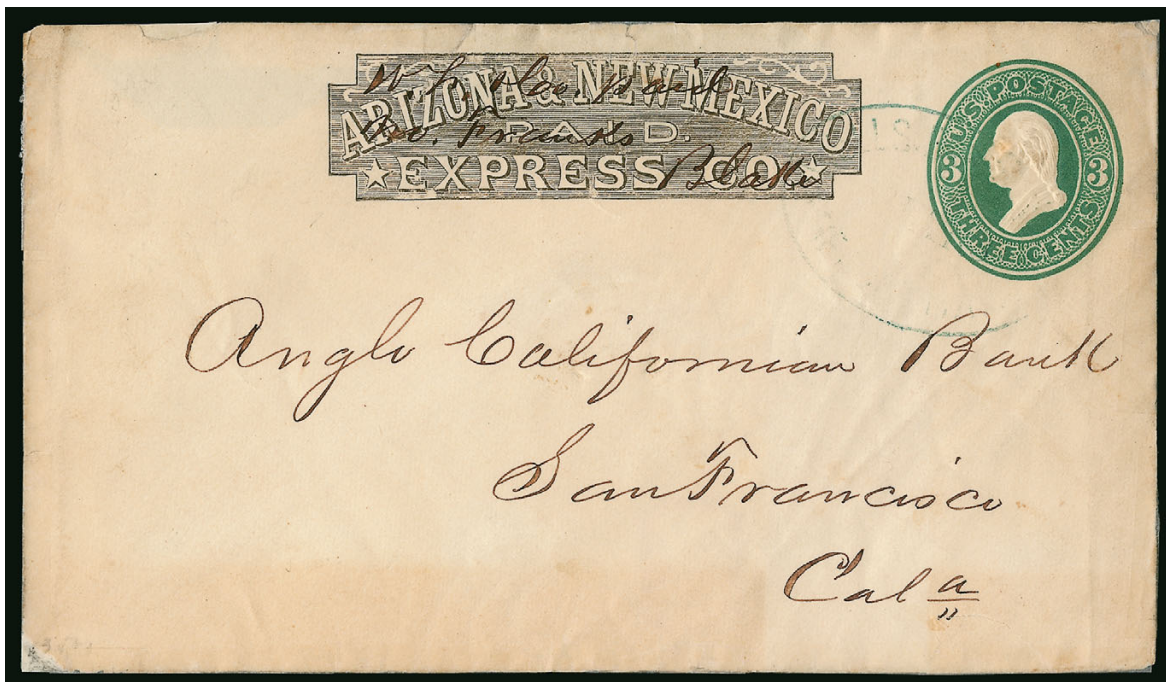 ARIZONA & NEW MEXICO
PAID.
EXPRESS CO
paid
Franks
Blake
U.S. POSTAGE
3 3
THREE CENTS
Anglo Californian Bank
San Francisco
Cal a